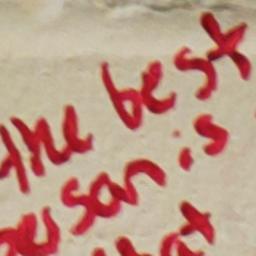 the best
person is